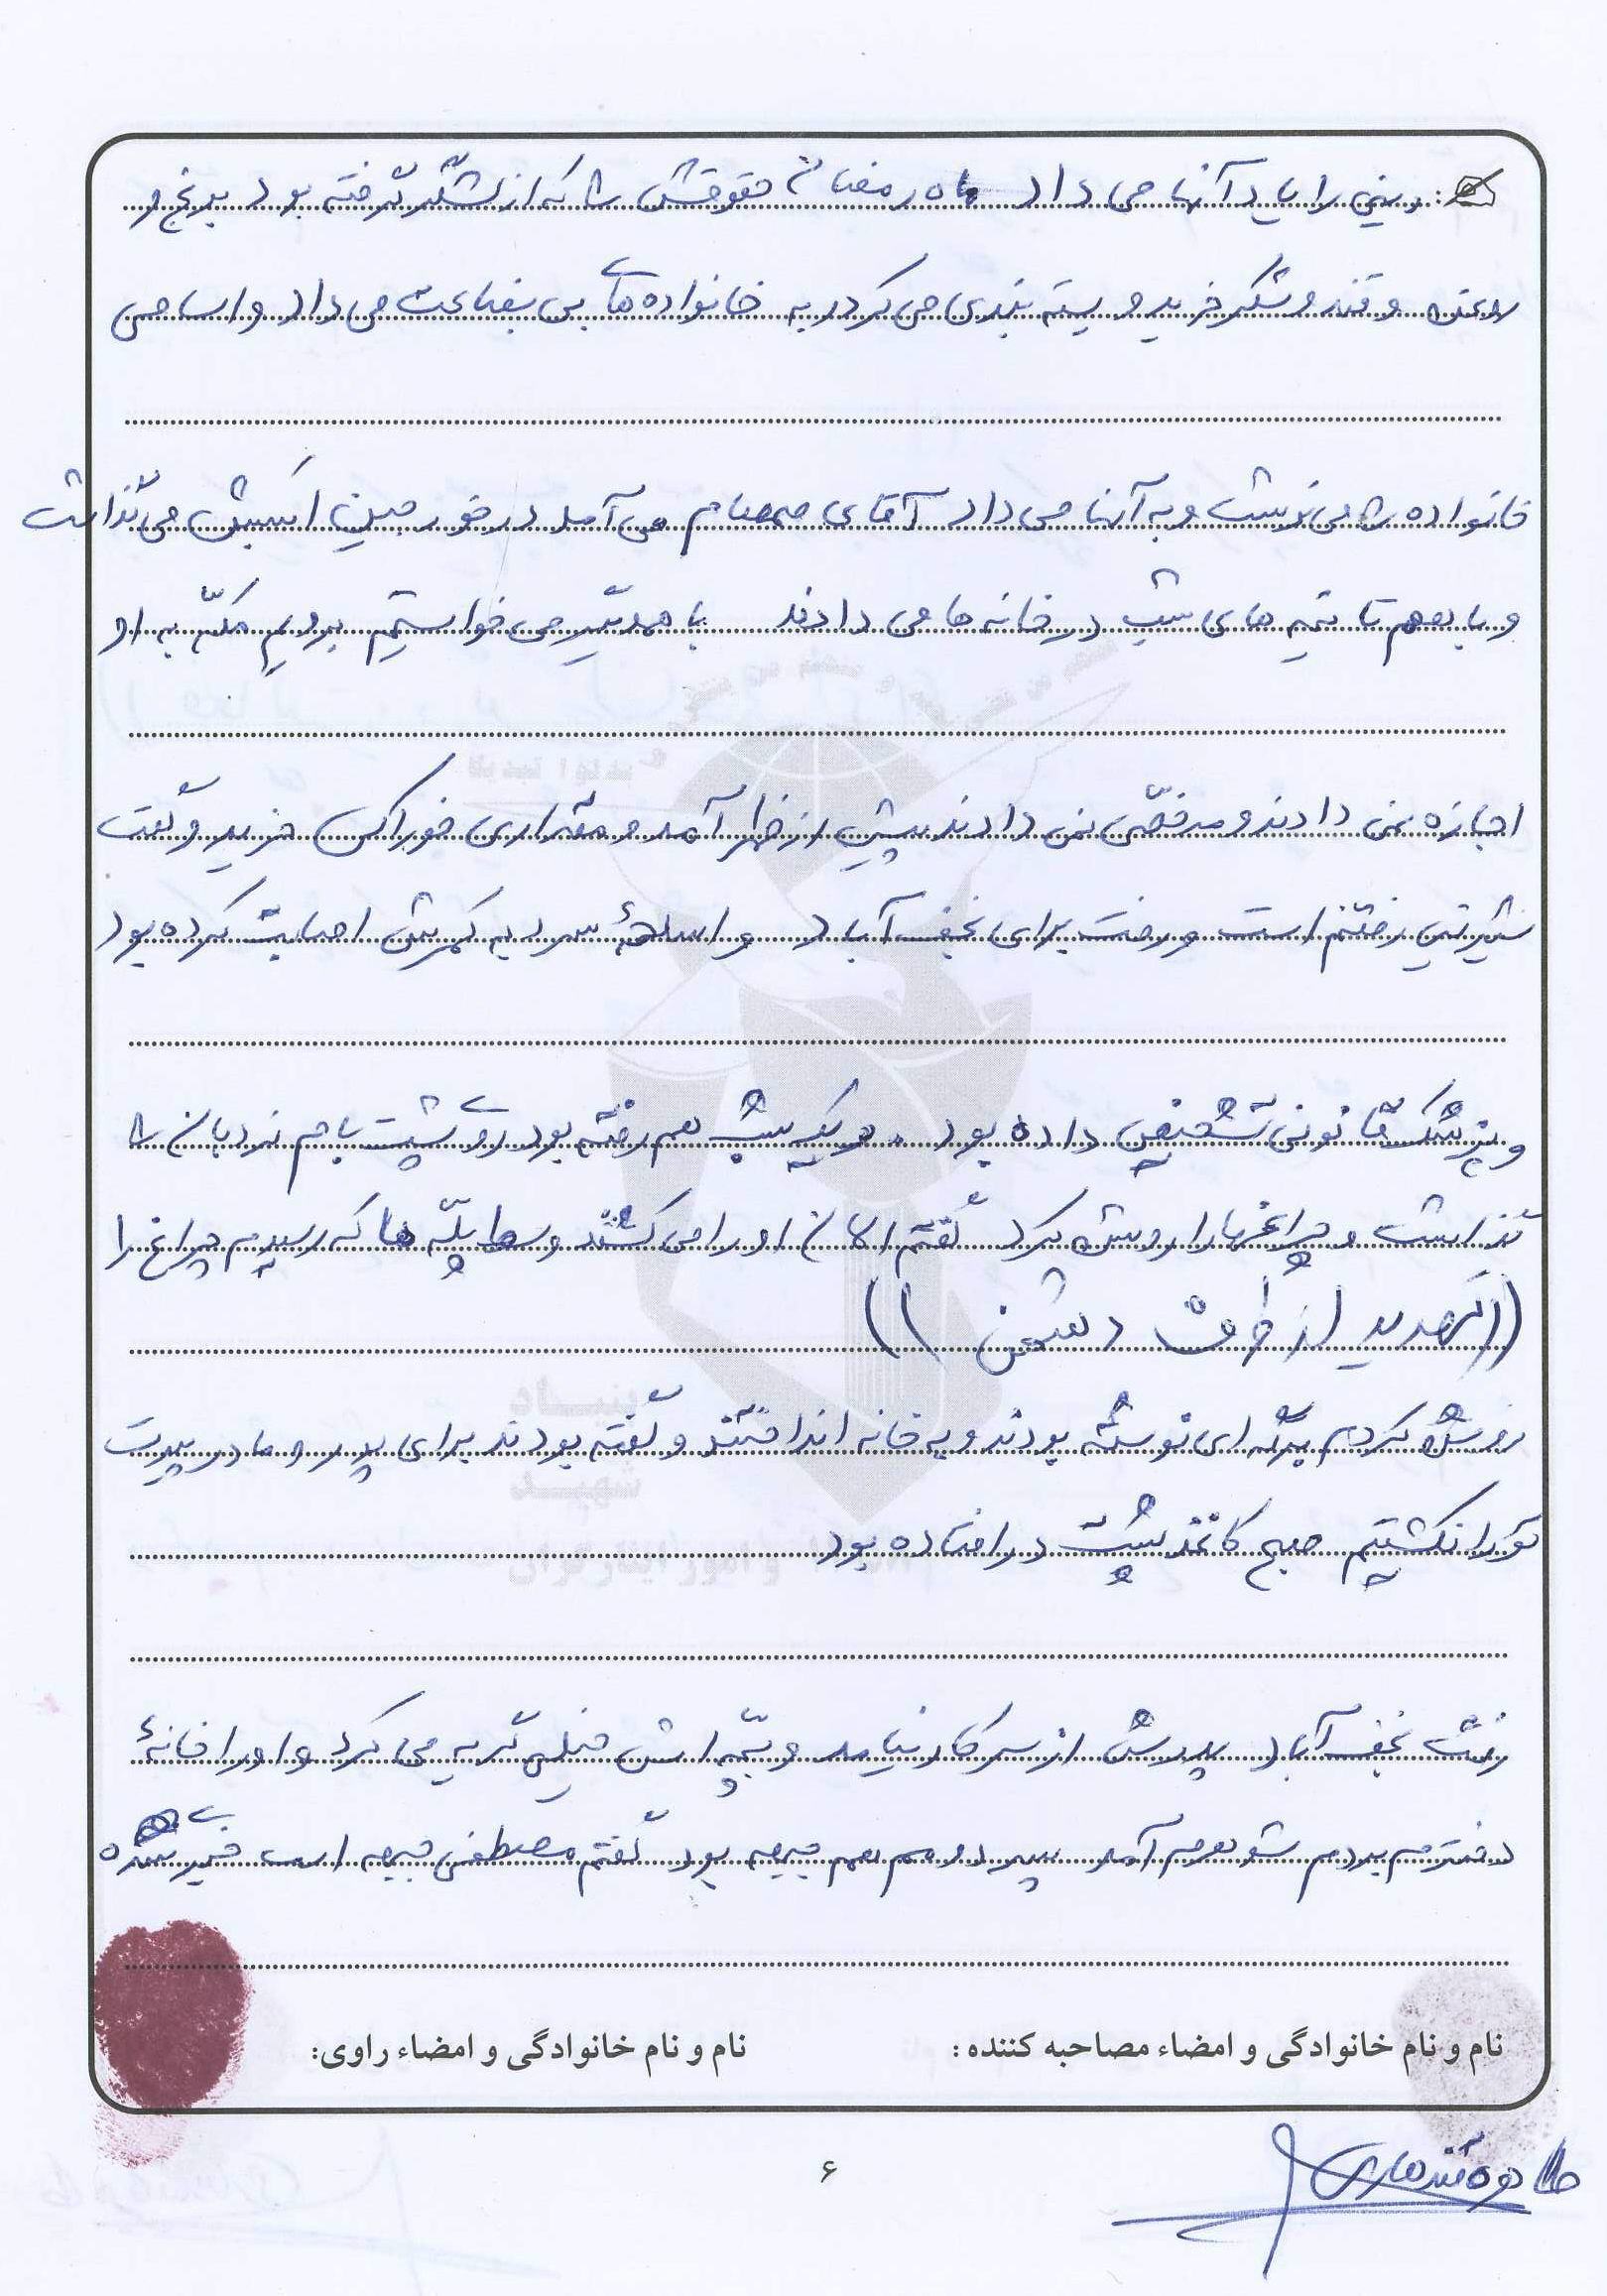 دینی را یاد آنها می داد ماه رمضان حقوقش را که از لشگر گرفته بود برنج و
روغن و قند و شکر خرید و بسته بندی می کرد به خانواده های بی بضاعت می داد و اسامی
خانواده را می نوشت و به آنها می داد آقای صمصام می آمد در خورجین اسبش می گذاشت
و با هم تا نیمه های شب در خانه ها می دادند با همدیگر می خواستیم برویم مکّه به او
اجازه نمی دادند و مرخصّی نمی دادند پیش از ظهر آمد و مقداری خوراکی خرید و گفت
شیرینی رفتنم است و رفت برای نجف آباد و اسلحهٔ سرد به کمرش اصابت کرده بود
و پزشک قانونی تشخیص داده بود. یک شب هم رفته بود روی پشت بام نردبان را
گذاشت و چراغها را روشن کرد گفتم الان او را می کشند وسط پلّه ها که رسیدم چراغ را
((تهدید از طرف دشمن))
روشن کردم برگه ای نوشته بودند و به خانه انداختند و گفته بودند برای پدر و مادر پیرت
تو را نکشتیم صبح کاغذ پشت در افتاده بود
رفت نجف آباد پدرش از سر کار نیامد و بچّه اش خیلی گریه می کرد و او را خانهٔ
دخترم بردم شوهرم آمد پسر دومم هم جبهه بود گفتم مصطفی جبهه است خبری شده
نام و نام خانوادگی و امضاء مصاحبه کننده :
نام و نام خانوادگی و امضاء راوی:
۶
بنیاد
شهید
و امور ایثارگران